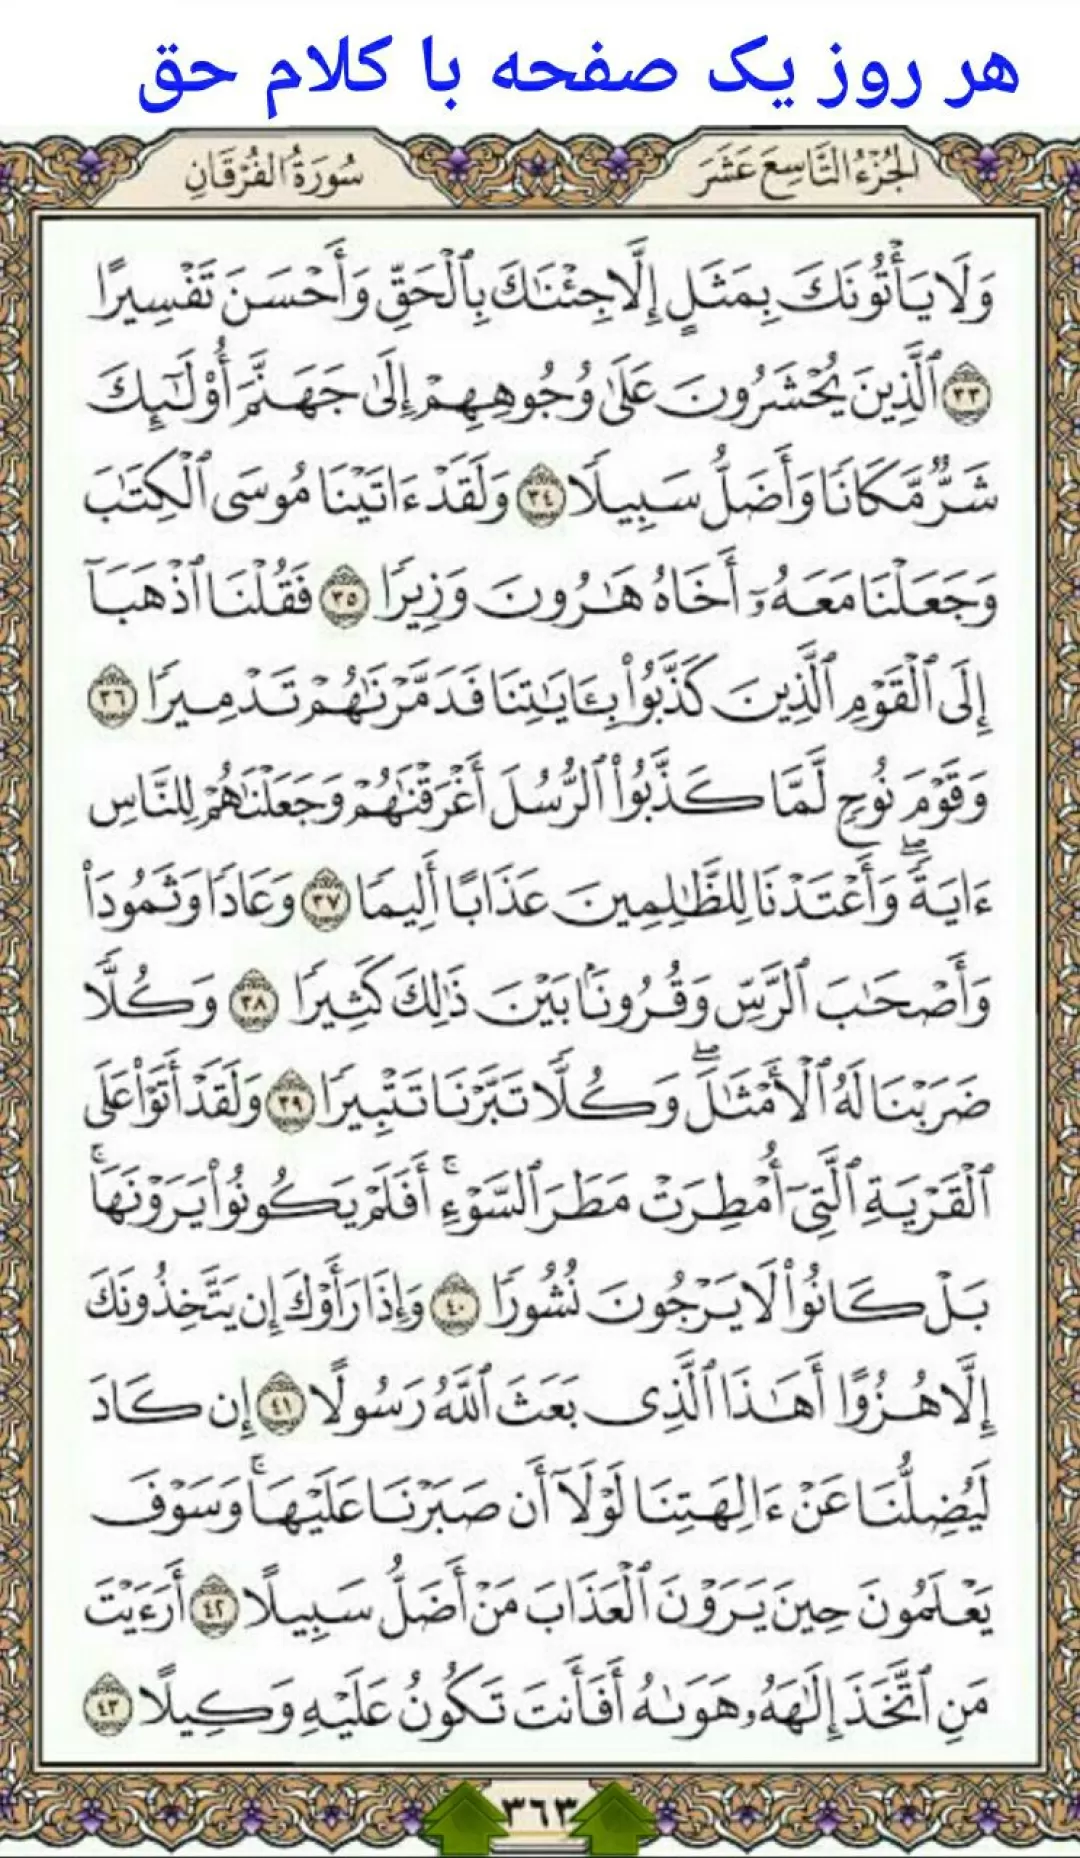 هر روز یک صفحه با کلام حق
الجُزْءُ التَّاسِعَ عَشَرَ
سُورَةُ الفُرْقَانِ
وَلَا يَأْتُونَكَ بِمَثَلٍ إِلَّا جِئْنَٰكَ بِٱلْحَقِّ وَأَحْسَنَ تَفْسِيرًا
٣٣ ٱلَّذِينَ يُحْشَرُونَ عَلَىٰ وُجُوهِهِمْ إِلَىٰ جَهَنَّمَ أُو۟لَٰٓئِكَ
شَرٌّ مَّكَانًا وَأَضَلُّ سَبِيلًا ٣٤ وَلَقَدْ ءَاتَيْنَا مُوسَى ٱلْكِتَٰبَ
وَجَعَلْنَا مَعَهُۥٓ أَخَاهُ هَٰرُونَ وَزِيرًا ٣٥ فَقُلْنَا ٱذْهَبَآ
إِلَى ٱلْقَوْمِ ٱلَّذِينَ كَذَّبُوا۟ بِـَٔايَٰتِنَا فَدَمَّرْنَٰهُمْ تَدْمِيرًا ٣٦
وَقَوْمَ نُوحٍ لَّمَّا كَذَّبُوا۟ ٱلرُّسُلَ أَغْرَقْنَٰهُمْ وَجَعَلْنَٰهُمْ لِلنَّاسِ
ءَايَةً ۖ وَأَعْتَدْنَا لِلظَّٰلِمِينَ عَذَابًا أَلِيمًا ٣٧ وَعَادًا وَثَمُودَا۟
وَأَصْحَٰبَ ٱلرَّسِّ وَقُرُونًۢا بَيْنَ ذَٰلِكَ كَثِيرًا ٣٨ وَكُلًّا
ضَرَبْنَا لَهُ ٱلْأَمْثَٰلَ ۖ وَكُلًّا تَبَّرْنَا تَتْبِيرًا ٣٩ وَلَقَدْ أَتَوْا۟ عَلَى
ٱلْقَرْيَةِ ٱلَّتِىٓ أُمْطِرَتْ مَطَرَ ٱلسَّوْءِ ۚ أَفَلَمْ يَكُونُوا۟ يَرَوْنَهَا ۚ
بَلْ كَانُوا۟ لَا يَرْجُونَ نُشُورًا ٤٠ وَإِذَا رَأَوْكَ إِن يَتَّخِذُونَكَ
إِلَّا هُزُوًا أَهَٰذَا ٱلَّذِى بَعَثَ ٱللَّهُ رَسُولًا ٤١ إِن كَادَ
لَيُضِلُّنَا عَنْ ءَالِهَتِنَا لَوْلَآ أَن صَبَرْنَا عَلَيْهَا ۚ وَسَوْفَ
يَعْلَمُونَ حِينَ يَرَوْنَ ٱلْعَذَابَ مَنْ أَضَلُّ سَبِيلًا ٤٢ أَرَءَيْتَ
مَنِ ٱتَّخَذَ إِلَٰهَهُۥ هَوَىٰهُ أَفَأَنتَ تَكُونُ عَلَيْهِ وَكِيلًا ٤٣
٣٦٣